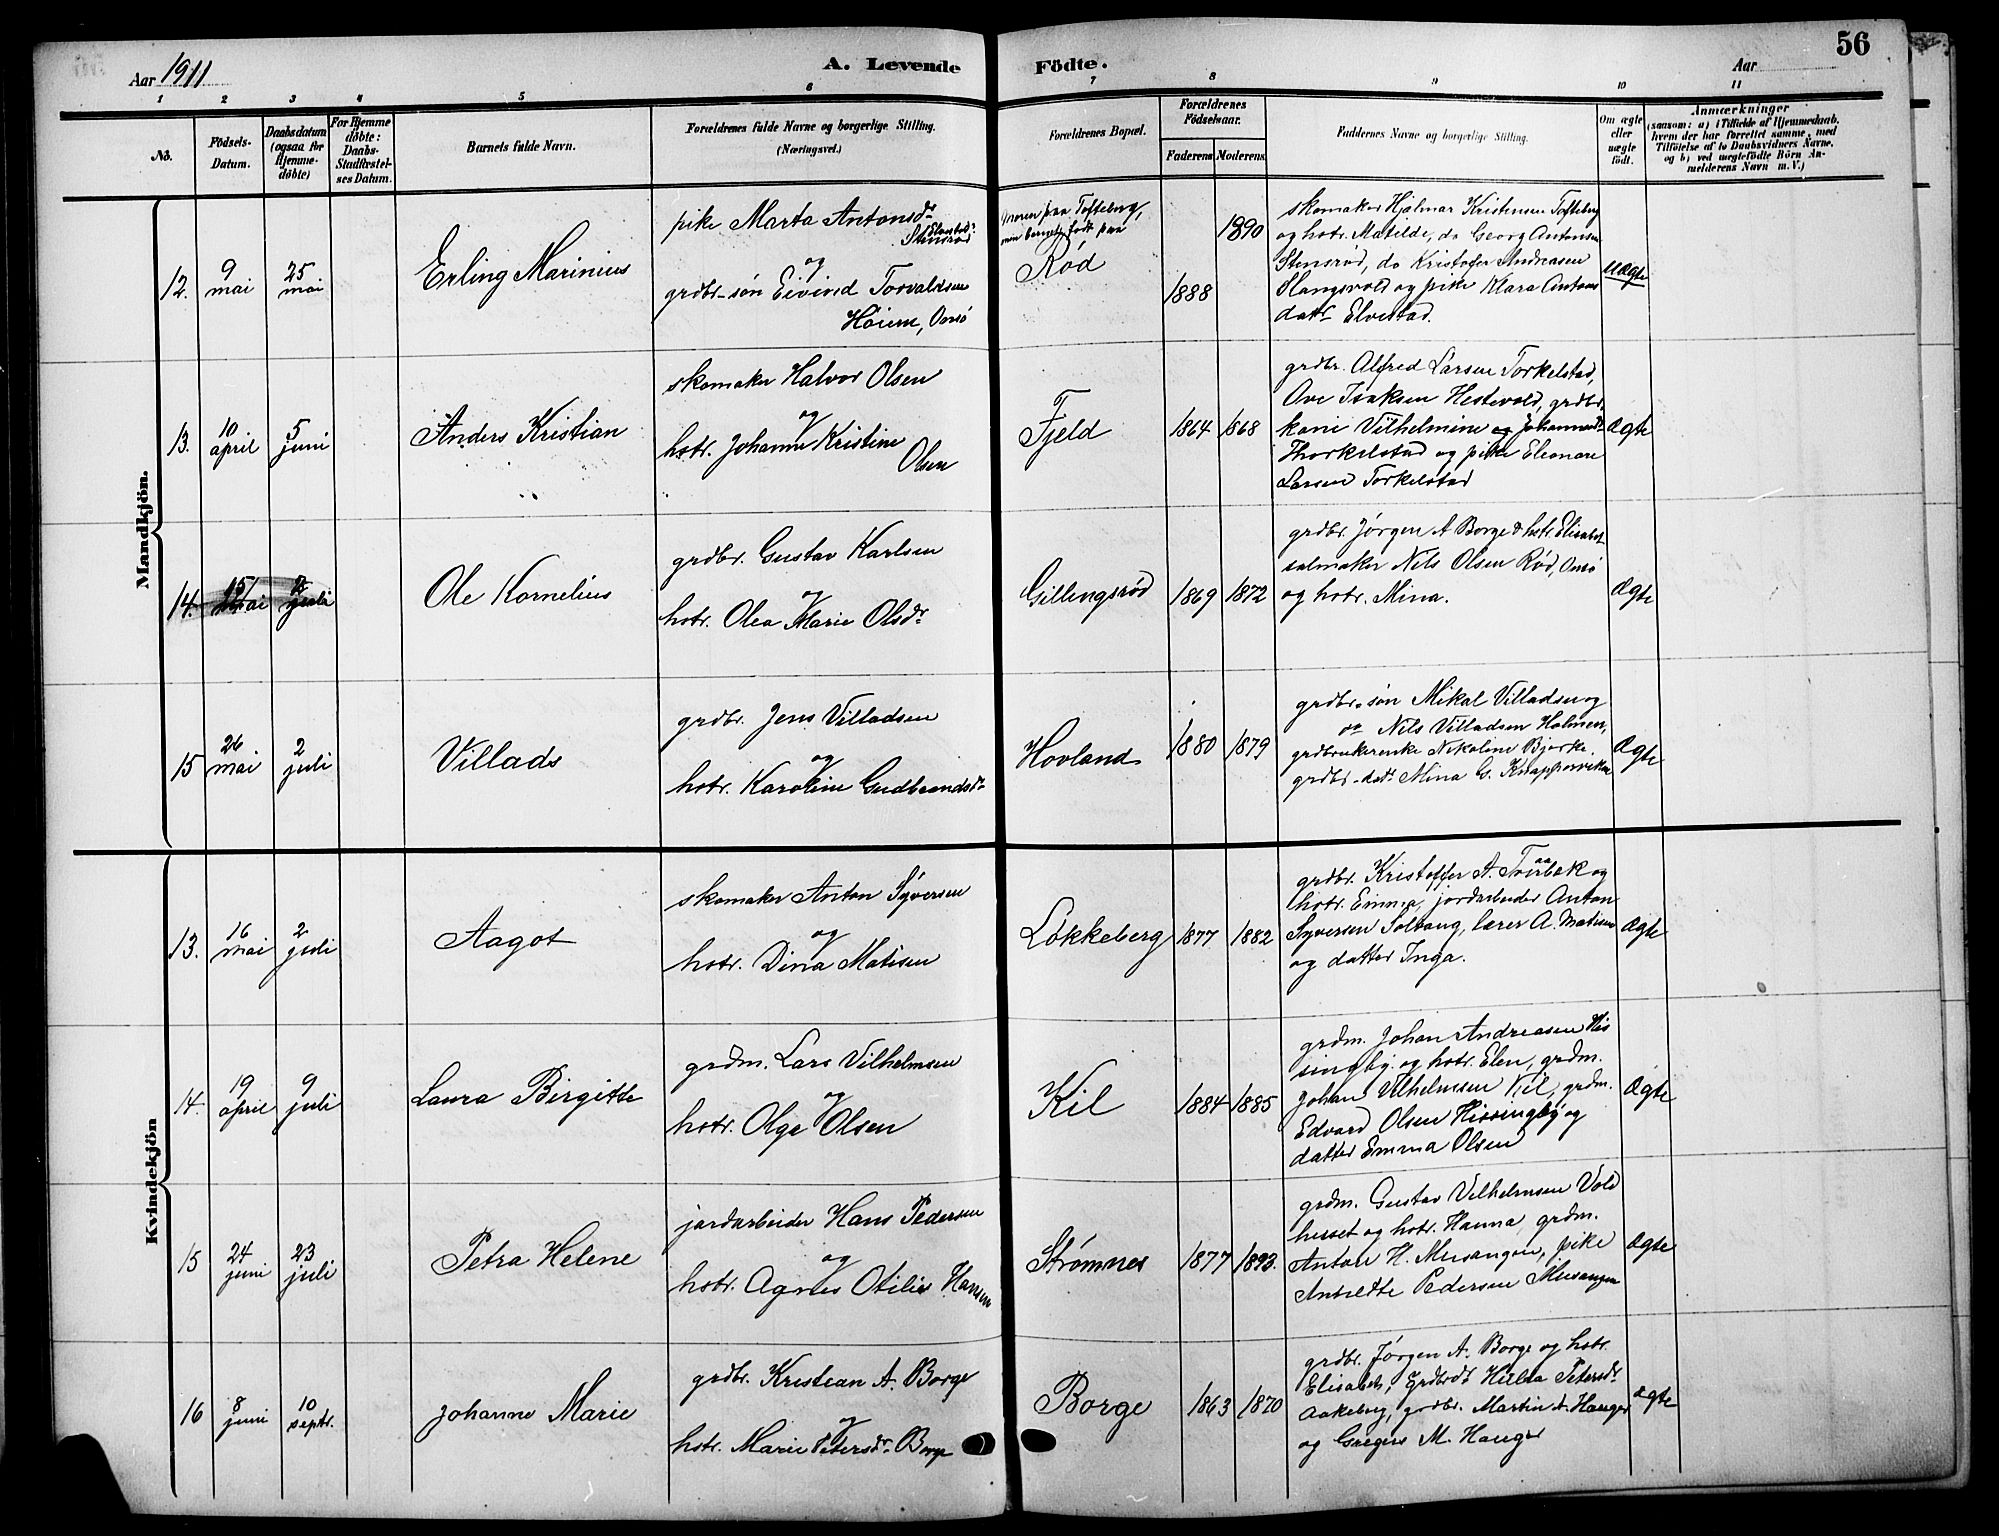 56
Aar 1911
A. Levende
Födte.
Aar
1 2 3 4 5 6 7 8 9 10 11
No.
Födsels-
Datum.
Daabsdatum
(ogsaa for
Hjemme-
døbte)
For Hjemme
døbte:
Daabs-
Stadfæstel-
ses Datum.
Barnets fulde Navn.
Forældrenes fulde Navne og borgerlige Stilling.
(Næringsvei.)
Forældrenes Bopæl.
Forældrenes
Födselsaar.
Faderens
Moderens
Faddernes Navne og borgerlige Stilling.
Om ægte
eller
uægte
født.
Anmærkninger
(saasom: a) i Tilfælde af Hjemmedaab,
hvem der har forrettet samme, med
Tilföielse af to Daabsvidners Navne,
og b) ved uægtefødte Börn An-
melderens Navn m. V.)
Mandkjön.
12.
9
mai
25
mai
Erling Marinius
pike Marta Antonsdr
Elvestad
Stensrød
og
grdbr-søn Eivind Torvaldsen
Høiem, Onsø
Moren paa Tofteberg,
men barnet født paa
Rød
1888
1890
skomaker Hjalmar Kristensen Tofteberg
og hstr. Matilde, do Georg Antonsen
Stensrød, do Kristofer Andreasen
Slangsvold og pike Klara Antons
datr Elvestad.
uægte
13.
10
april
5
juni
Anders Kristian
skomaker Halvor Olsen
og
hstr. Johanne Kristine
Olsen
Fjeld
1864
1868
grdbr. Alfred Larsen Torkelstad,
Ove Isaksen Hestevold, grdbr.
kone Vilhelmine Johannesdr
Thorkelstad og pike Eleonore
Larsen Torkelstad
Ægte
14.
15
mai
juli
Ole Kornelius
grdbr. Gustav Karlsen
og
hstr. Olea Marie Olsdr
Gillingsrød
1869
1872
grdbr. Jørgen A Borge & hstr. Elisabet
salmaker Nils Olsen Rød, Onsø
og hstr. Mina.
Ægte
15
26
mai
2
juli
Villads
grdbr. Jens Villadsen
og
hstr. Karoline Gudbrandsdr
Hovland
1880
1879
grdbr-søn Mikal Villadsen og
do Nils Villadsen Holmen,
grdbrukerenke Nikoline Bjerke,
grdbr-datr Mina G. Knapperviken
Ægte
Kvindekjön
13.
16
mai
2
juli
Aagot
skomaker Anton Syversen
og
hstr. Dina Matisen
Løkkeberg
1877
1882
grdbr. Kristoffer A. Tverbæk og
hstr. Emma, jordarbeider Anton
Syversen Solbang, lærer A. Matisen
og datter Inga.
Ægte
14.
19
april
9
juli
Laura Birgitte
grdm. Lars Vilhelmsen
og
hstr. Olga Olsen
Kil
1884
1885
grdm. Johan Andreasen His
singby og hstr. Elen, grdm.
Johan Vilhelmsen Kil, grdm.
Edvard Olsen Hissingby og
datter Emma Olsen
Ægte
15
24
juni
23
juli
Petra Helene
jordarbeider Hans Pedersen
og
hstr. Agnes Otilie Hansen
Strømnes
1877
1893.
grdm. Gustav Vilhelmsen Vold
husset og hstr. Hanna, grdm.
Anton H. Musangen, pike
Anrette Pedersen Musangen
Ægte
16
8
juni
10
septr.
Johanne Marie
grdbr. Kristian A. Borge
og
hstr. Marie Petersdr. Borge
Borge
1863
1870
grdbr. Jørgen A. Borge og hstr.
Elisabet, grdbrdr Hilda Petersdr
Aakeberg, grdbr. Martin A Hauger
og Gregers M. Hauger
Ægte